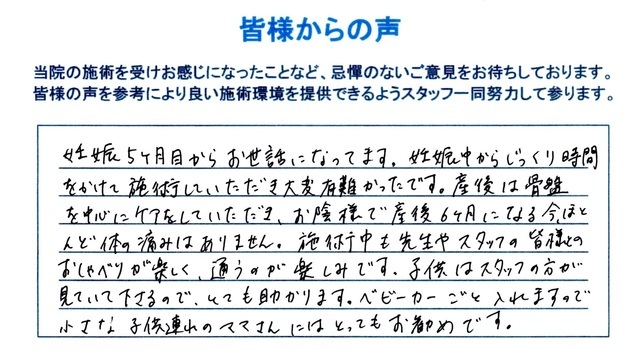 皆様からの声
当院の施術を受けお感じになったことなど、忌憚のないご意見をお待ちしております。
皆様の声を参考により良い施術環境を提供できるようスタッフ一同努力して参ります。
妊娠5ヶ月目からお世話になってます。妊娠中からじっくり時間
をかけて施術していただき大変有難かったです。産後は骨盤
を中心にケアをしていただき、お陰様で産後6ヶ月になる今、ほと
んど体の痛みはありません。施術中も先生やスタッフの皆様との
おしゃべりが楽しく、通うのが楽しみです。子供はスタッフの方が
見ていて下さるので、とても助かります。ベビーカーごと入れますので
小さな子供連れのママさんにはとってもお勧めです。